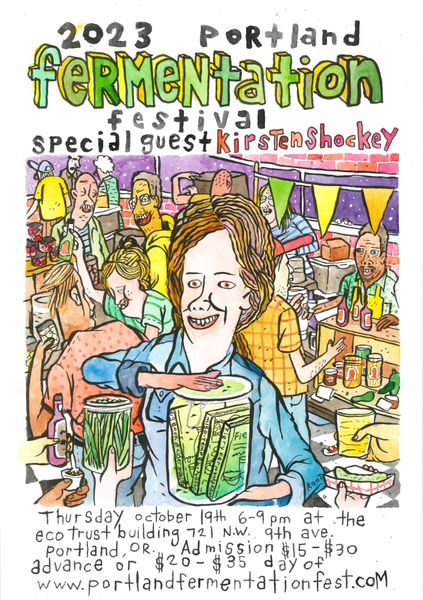 2023 Portland
fermentation
festival
special guest Kirsten Shockey
Thursday october 19th 6-9 pm at the
ecotrust building 721 N.W. 9th ave.
Portland, OR. Admission $15-$30
advance or $20-$35 day of
www.portlandfermentationfest.com